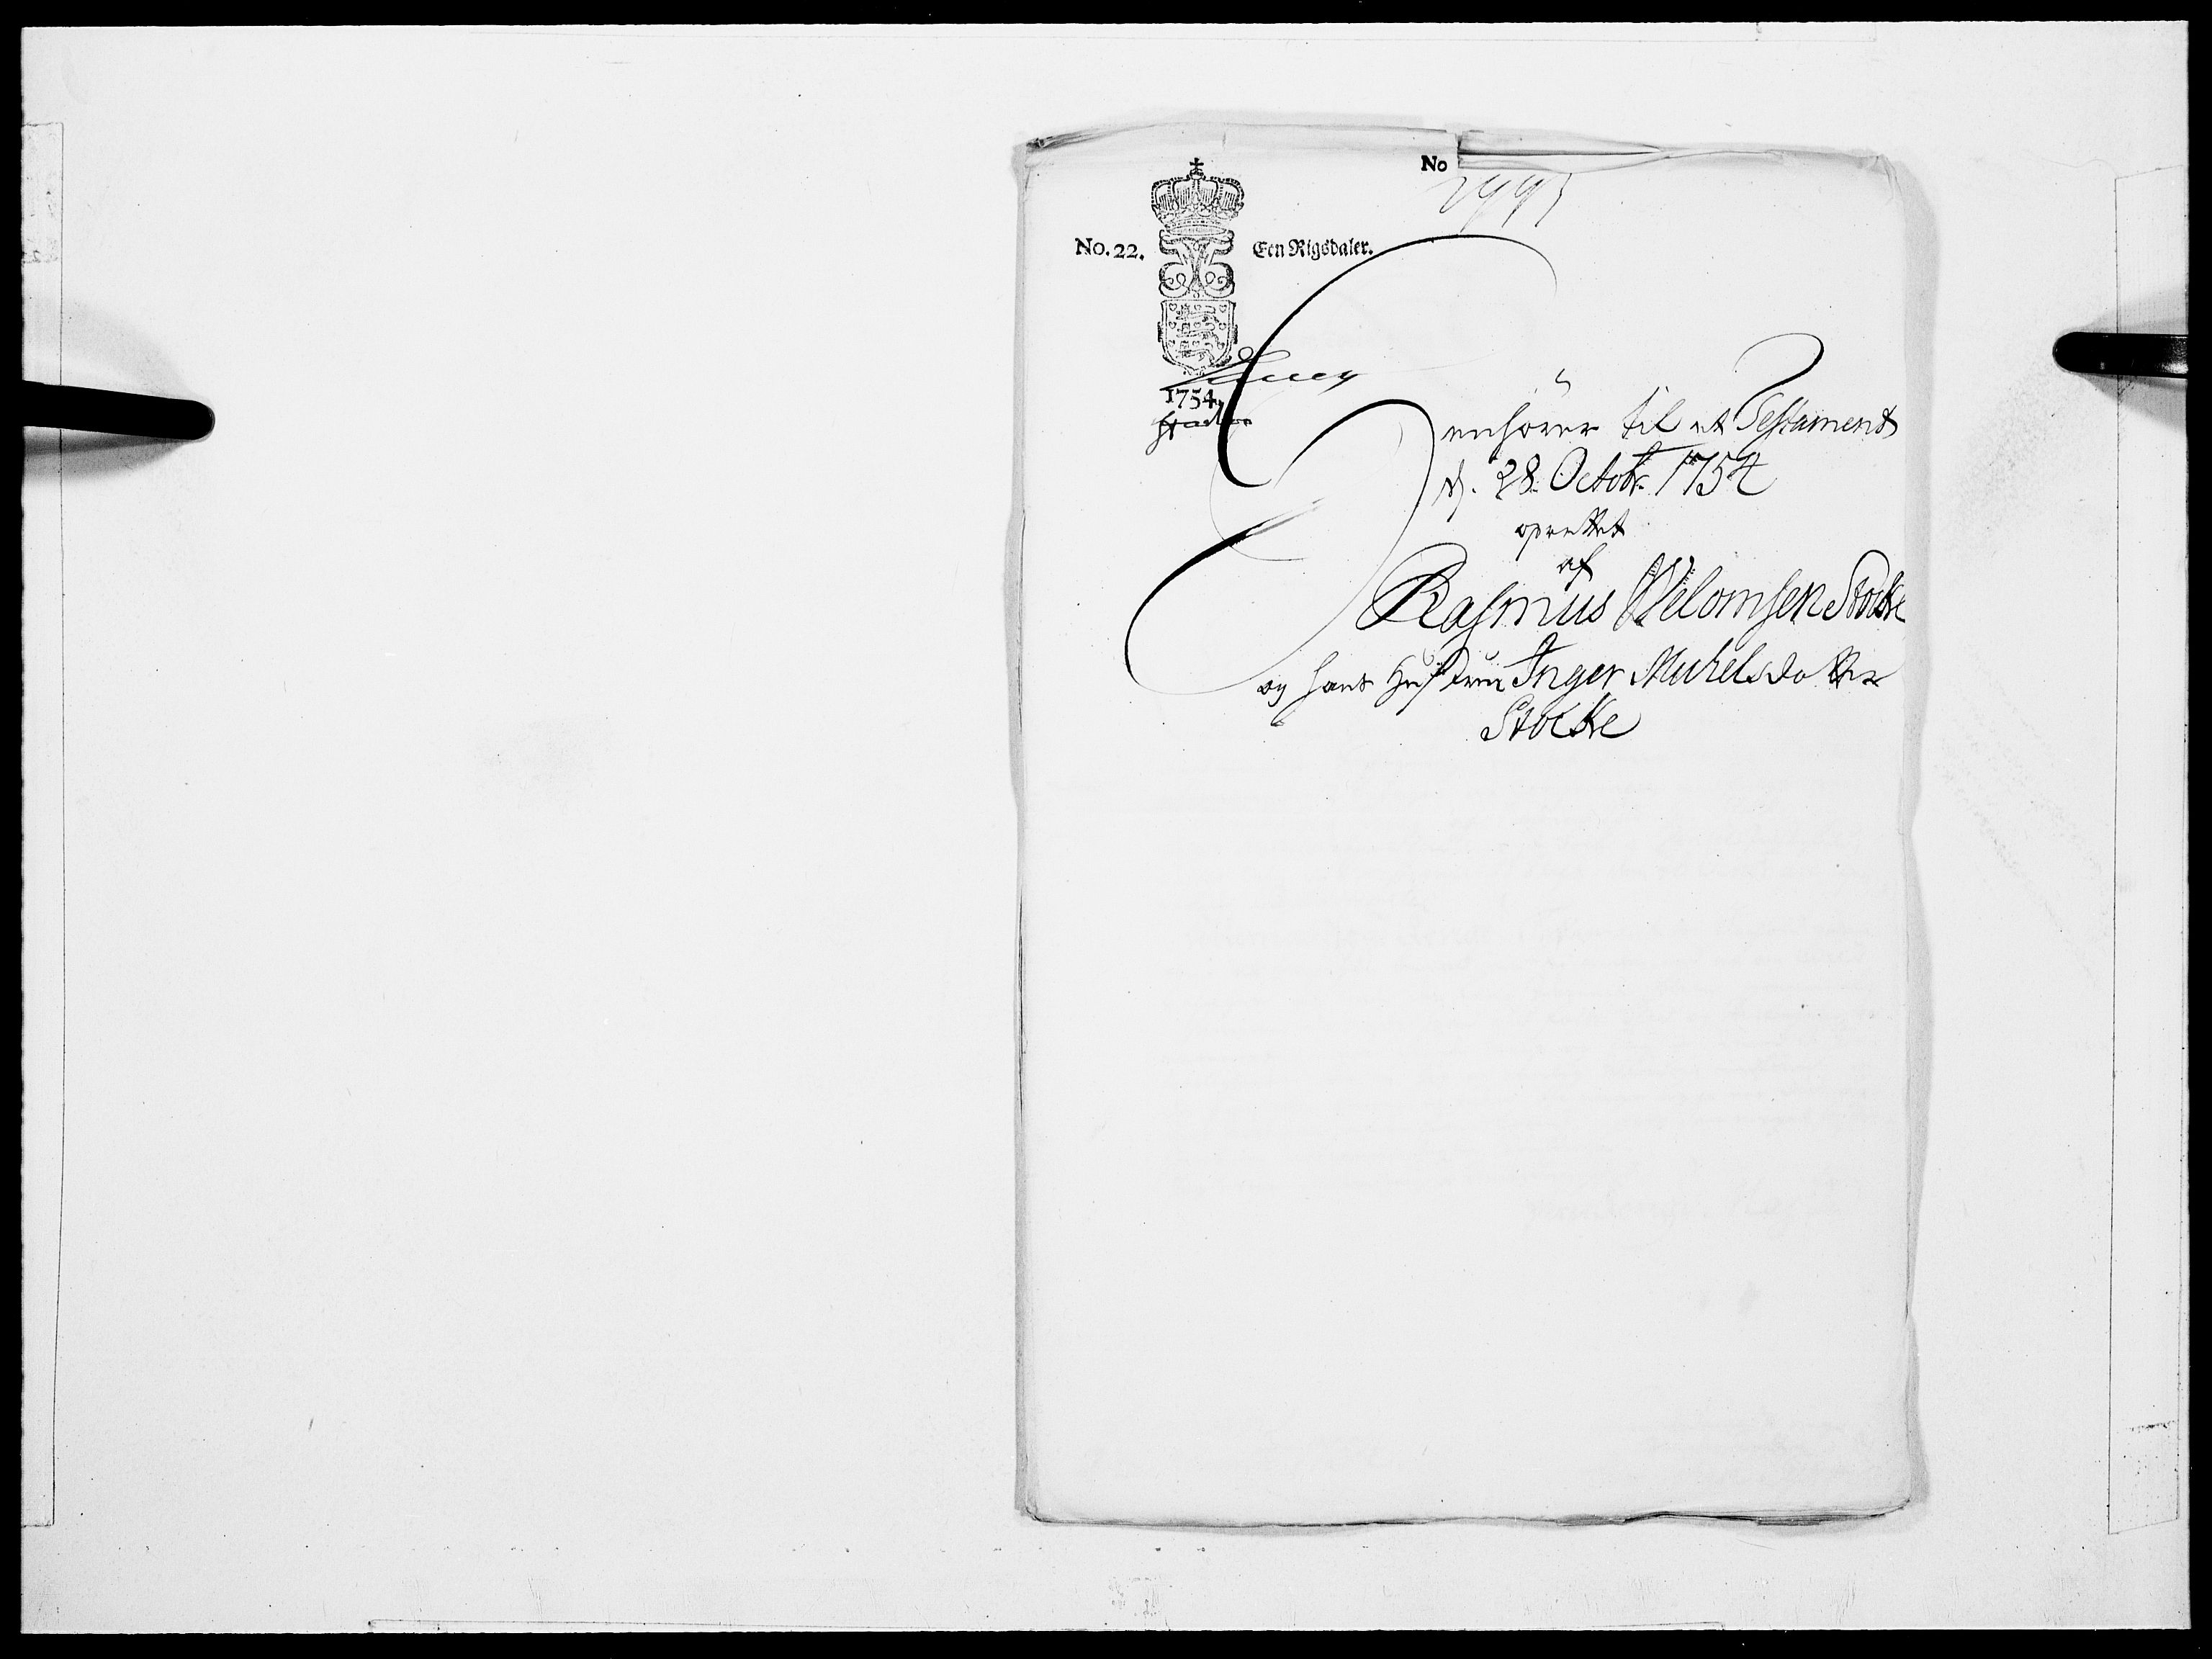 No
No. 22.
Een Rigsdaler.
1754.
Henhörer til et Testament
d. 28. Octobr. 1754
oprettet
af
Rasmus Velomsen Stocke
og hans Hustrue Inger Michelsdatter
Stocke